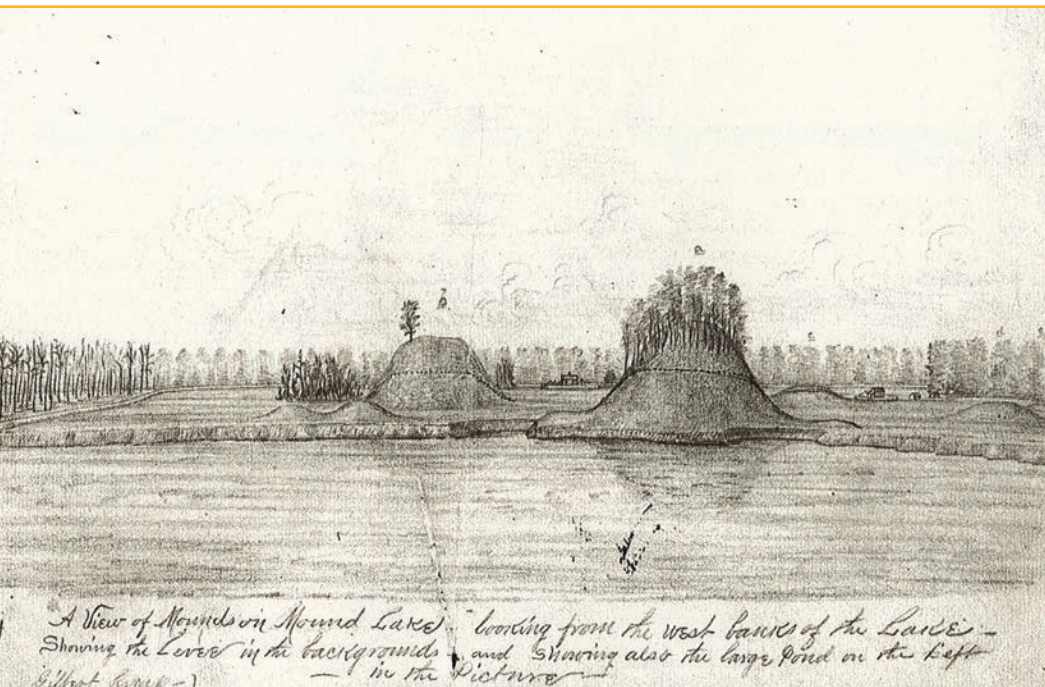 A View of Mounds on Mound Lake - looking from the west banks of the Lake -
Showing the Levee in the backgrounds - and showing also the large Pond on the Left
- in the Picture -
Gilbert